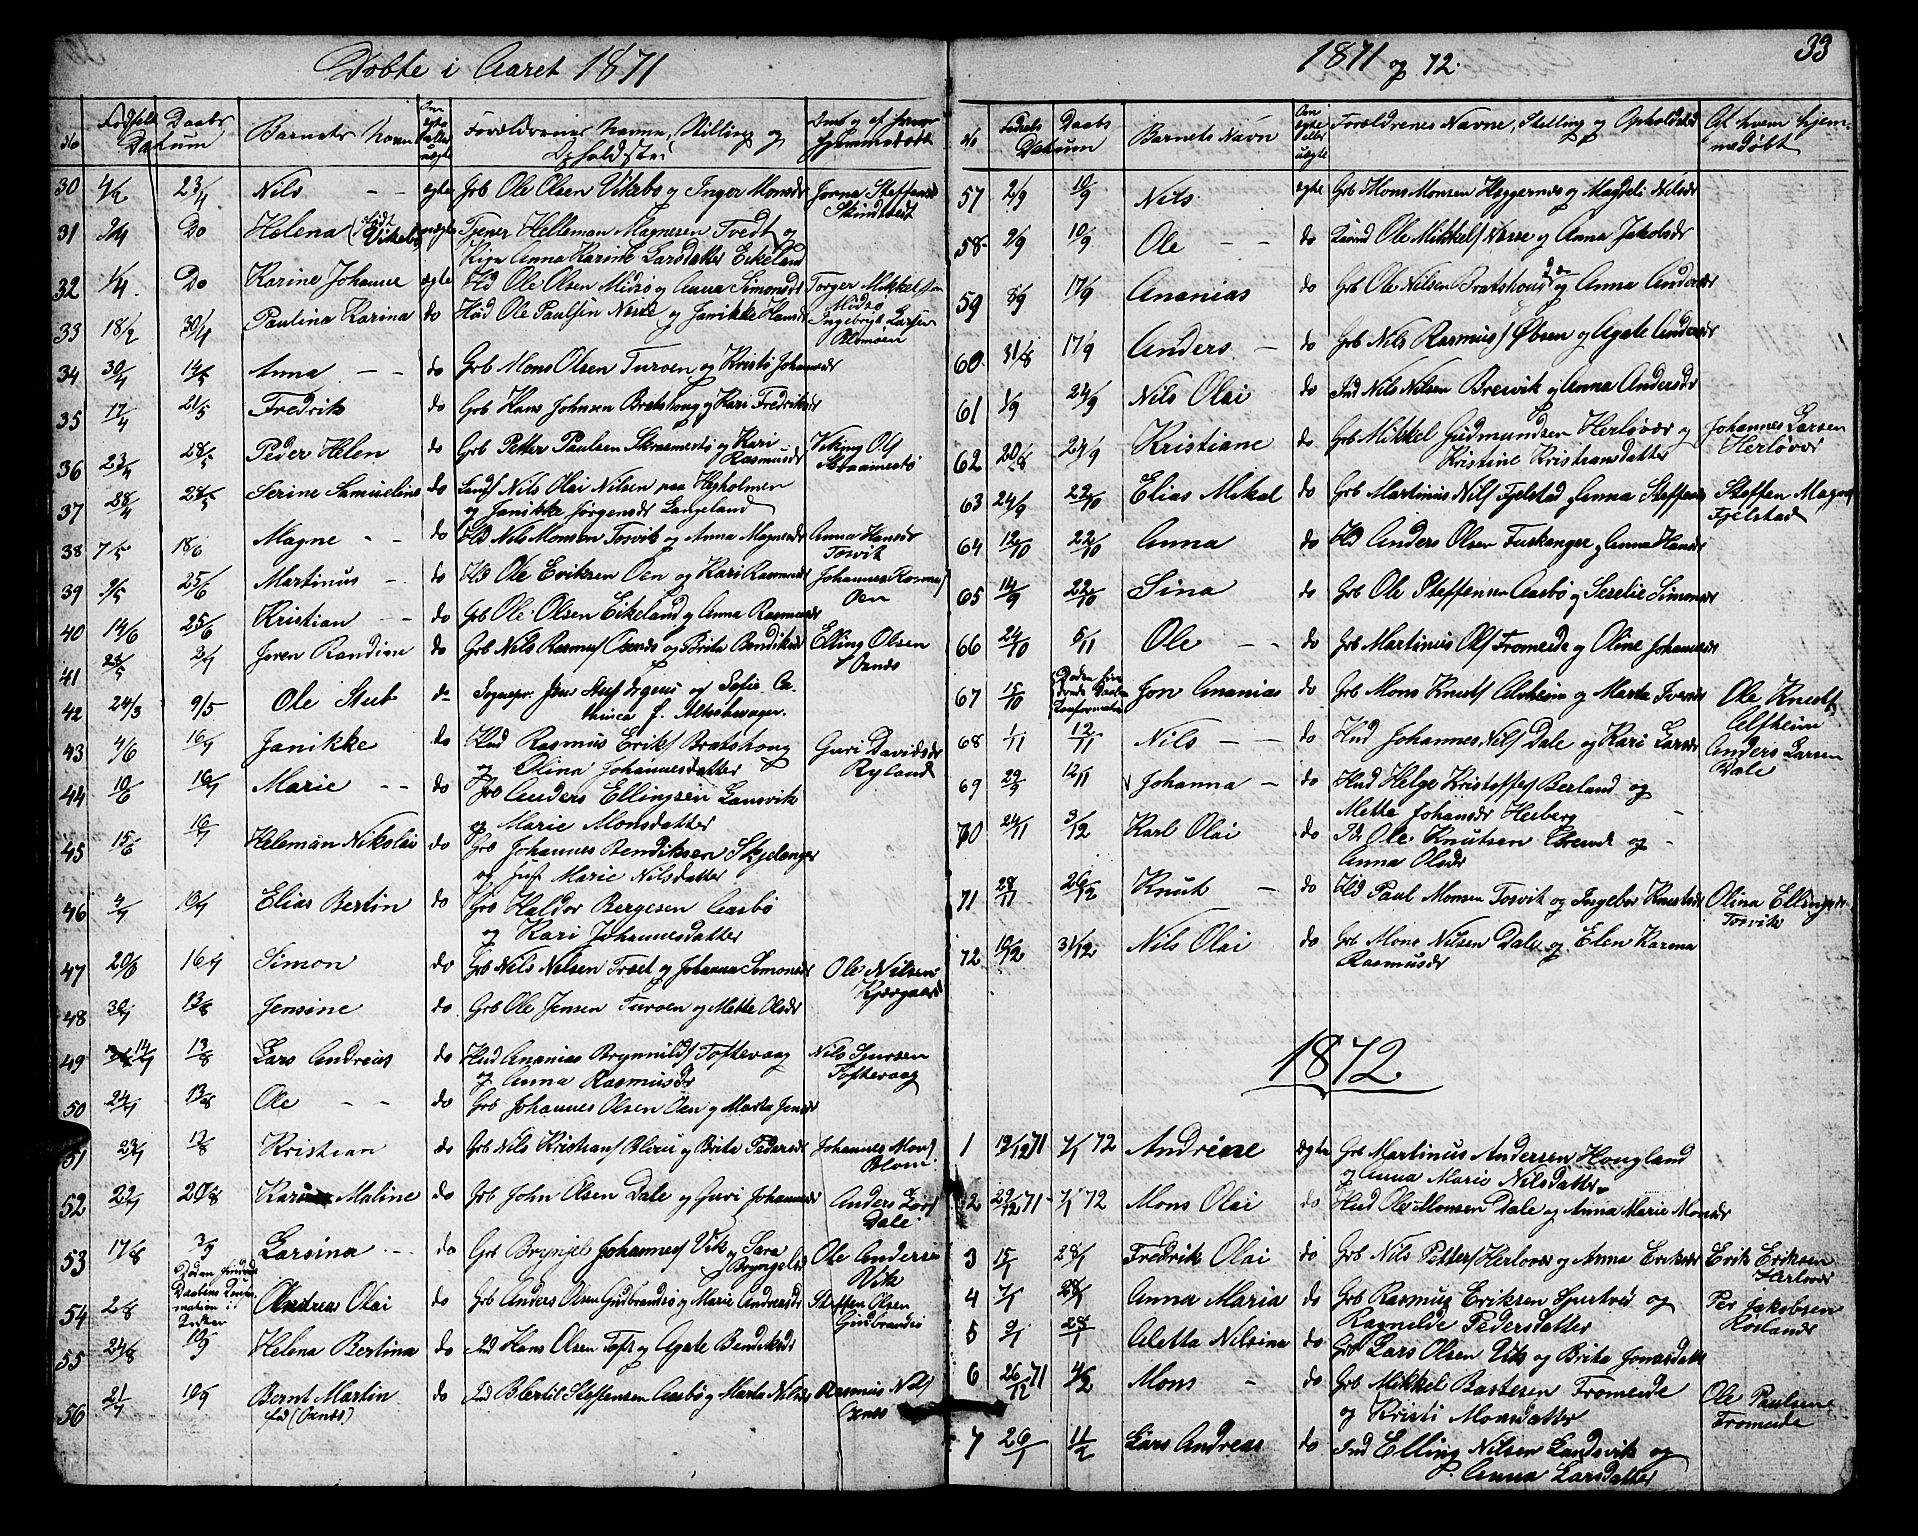 Døbte i Aaret 1871
No Fødsels Daabs Datum Barnets Navn Om ægte eller uægte Forældrenes Navne, Stilling og Opholdssted
30 4/2 23/4 Nils - - ægte Grb Ole Olsen Vikebø og Inger Monsdr
31 2/4 Do Helena (født Vikebø) uægte Tjener Helleman Magnesen Tvedt og
Pige Anna Karine Larsdatter Eikeland
32 1/4 Do Karine Johanne ægte Hd Ole Olsen Midsø og Anna Simonsdr Torger Mikkelsen
Midsø
33 18/2 30/4 Paulina Karina do Hud Ole Paulsen Nesse og Janikke Hansdr Ingebrigt Larsen
Blomøen
34 30/4 14/5 Anna - - do Grb Mons Olsen Turøen og Kristi Johannesdr
35 17/4 21/5 Fredrik do Grb Hans Johnsen Bratshoug og Kari Fredriksdr
36 23/4 28/5 Peder Helen do Grb Petter Paulsen Skraamestø og Kari
Rasmusdr Viking Ols
Skraamestø
37 28/4 28/5 Serine Samueline do Lands Nils Olai Nilsen paa Hegholmen
og Janikke Jørgensdr Langeland
38 7/5 18/6 Magne - - do Hd Nils Monsen Tosvik og Anna Magnesdr Anna Hansdr
Tosvik
39 9/5 25/6 Martinus - do Hd Ole Eriksen Øen og Kari Rasmusdr Johannes Rasmus/
Øen
40 14/6 25/6 Kristian - - do Grb Ole Olsen Eikeland og Anna Rasmusdr
41 28/5 2/7 Joren Randine do Grb Nils Rasmus/ Oenæs og Brita Bendiksdr Elling Olsen
Oenæs
42 24/3 9/5 Ole Stub do Sognepr. Jens Stub Irgens og Sofie Ca-
43 4/6 16/7 Janikke do Hud Rasmus Erik/ Bratshoug
og Olina Johannesdatter Guri Davidsdr
Ryland
44 10/6 16/7 Marie - - do Grb Anders Ellingsen Landsvik
og Marie Monsdatter
45 15/6 16/7 Heleman Nikolai do Grb Johannes Bendiksen Skjelanger
og Marie Nilsdatter
46 4/7 16/7 Elias Bertin do Grb Haldor Bergesen Aasbø
og Kari Johannesdatter
47 20/6 16/7 Simon do Grb Nils Nilsen Træt og Johanna Simonsdr Ole Nilsen
Kjærgaard
48 30/7 13/8 Jensine do Grb Ole Jensen Turøen og Mette Olsdr
49 14/7 13/8 Lars Andreas do Hud Ananias Brynnild/ Toftevaag
og Anna Rasmusdr Nils Sjursen
Toftevaag
50 24/7 13/8 Ole - - do Grb Johannes Olsen Øen og Marta Jensdr
51 23/7 13/8 Kristian do Grb Nils Kristian/ Blom og Brita Pedersdr Johannes Mons/
Blom
52 22/7 20/8 Karine Maline do Grb John Olsen Dale og Guri Johannesdr Anders Lars/
Dale
53 17/8 3/9 Larsina - - do Grb Brynjel Johannes/ Vik og Sara
Bryngelsdr Ole Andersen
Vik
54 2/8 Andreas Olai do Grb Anders Olsen Gudbrandsø og Marie Andreasdr Steffen Olsen
Gudbrandsø
55 24/8 10/9 Helena Bertina do Ind Hans Olsen Toft og Agate Bendiksdr
56 21/7 10/9 Bernt Martin
fød (Oenæs) do Ind Bertil Steffensen Aasbø og Marta Nilsdr Rasmus Nils/
Oenæs
1871 og 72. 33
No Fødsels Daabs Datum Barnets Navn Om ægte eller uægte Forældrenes Navne, Stilling og Opholdssted Af hvem hjem-
medøbt
57 2/9 10/9 Nils ægte Grb Mons Monsen Heggernæs og Magdeli Nilsdr
58 2/9 10/9 Ole - - do Ole Mikkel/ Nesse og Anna Jakobsdr
59 8/9 17/9 Ananias do Grb Ole Nilsen Bratshoug og Anna Andersdr
60 31/8 17/9 Anders - do Grb Nils Rasmus/ Øvsen og Agate Andersdr
61 1/9 24/9 Nils Olai do Ind Nils Nilsen Breivik og Anna Andersdr
62 20/8 24/9 Kristiane do Grb Mikkel Gudmundsen Herløvær og
Kristine Kristiansdatter Johannes Larsen
Herløvær
63 24/9 22/10 Elias Mikal do Grb Martinus Nils/ Fjelstad og Anna Steffensdr Steffen Magnes/
Fjelstad
64 12/10 22/10 Anna do Hd Anders Olsen Turkanger og Anna Hansdr
65 14/9 22/10 Sina do Grb Ole Steffensen Aasbø og Serelie Simonsdr
66 24/10 5/11 Ole - - do Grb Martinus Ols/ Fromeide og Oline Johannesdr
67 15/10 Jon Ananias do Grb Mons Knuts/ Altheim og Marta Iversdr Ole Knuts/
Altheim
68 1/11 12/11 Nils - - do Hud Johannes Nils/ Dale og Kari Larsdr Anders Larsen
Dale
69 29/9 12/11 Johanna - do Hud Helge Kristoffer/ Berland og
Mette Johansdr Herberg
70 24/11 3/12 Karl Olai do Ole Knutsen Breende og
Anna Olsdr
71 28/11 26/12 Knut - do Hd Paul Monsen Tosvik og Ingebor Knutsdr Olina Ellingsdr
Tosvik
72 19/12 31/12 Nils Olai do Grb Mons Nilsen Dale og Elen Karina
Rasmusdr
1872.
1 19/12 71 7/1 72 Andrine ægte Gr Martinus Andersen Hougland
og Anna Marie Nilsdatter
2 29/12 71 7/1 72 Mons Olai do Hud Ole Monsen Dale og Anna Marie Monsdr
3 15/1 28/1 Fredrik Olai do Grb Nils Petter/ Herløvær og Anna Eriksdr Erik Eriksen
Herløvær
4 7/1 28/1 Anna Maria do Grb Rasmus Eriksen Spurtvid og
Ragnilde Pedersdatter Per Jakobsen
Rosland
5 9/1 28/1 Aletta Nilsina do Grb Lars Olsen Vik og Brita Jonasdatter
6 26/12 71 4/2 Mons - do Grb Mikkel Bastesen Fromeide
og Kristi Monsdatter Ole Paulsen
Fromeide
7 26/1 11/2 Lars Andreas do Ind Elling Nilsen Landsvik og
Anna Larsdatter